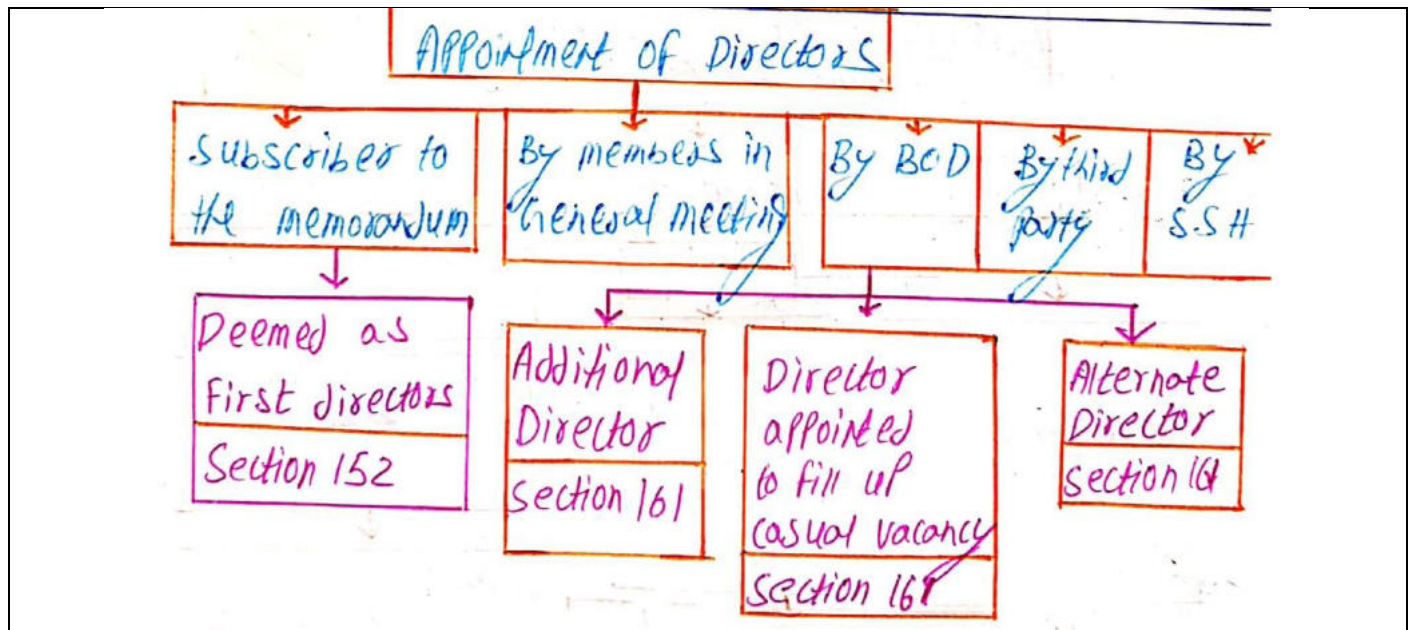 Appointment of Directors
Subscriber to
the memorandum
By members in
General meeting
By BOD
By third
Party
By
S.S H
Deemed as
First directors
Section 152
Additional
Director
Section 161
Director
appointed
to fill up
casual vacancy
Section 161
Alternate
Director
Section 161